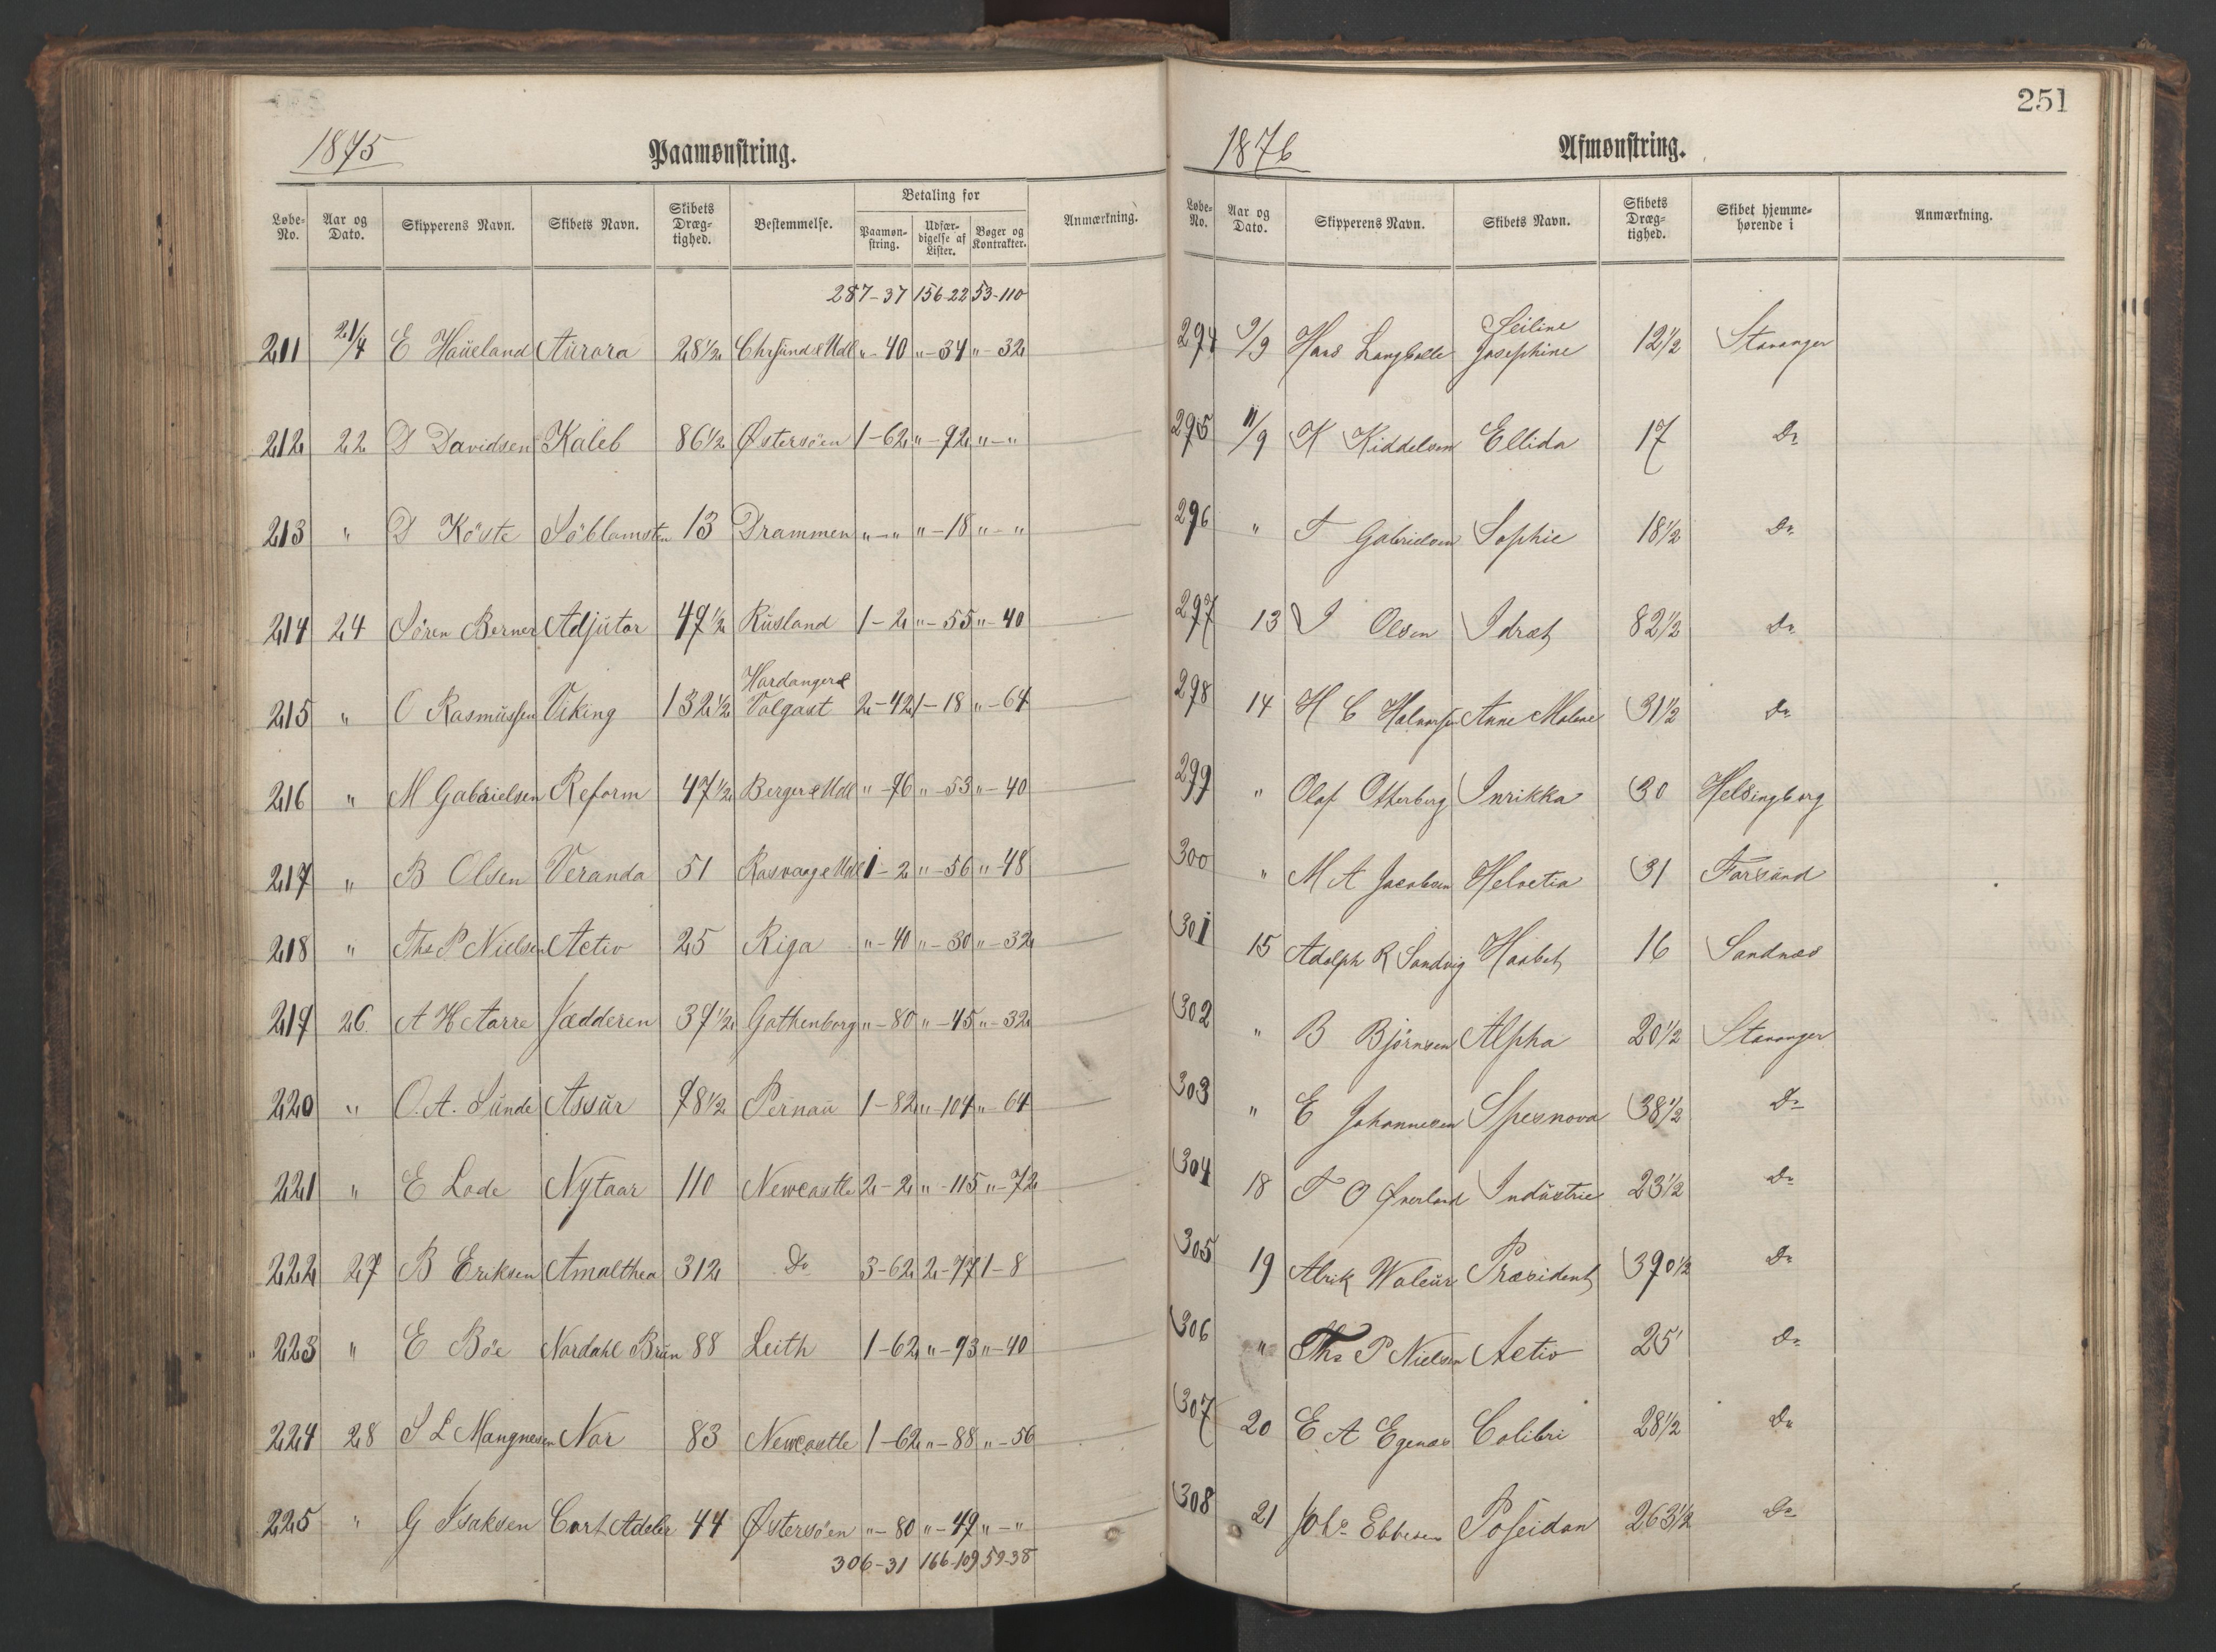 251
1875 Paamønstring.
Løbe-No. Aar og Dato. Skipperens Navn. Skibets Navn. Skibets Dræg-tighed. Bestemmelse. Betaling for Paamøn-string. Udfær-digelse af Lister. Bøger og Kontrakter. Anmærkning.
287-37 156-22 53-110
211 21/4 E Haüeland Aürora 28 1/2 Chrsünd & Udl "-40 "-34 "-32
212 22 D Davidsen Kaleb 86 1/2 Østersöen 1-62 "-92 "-"
213 " D Köste Söblomsten 13 Drammen "-" "-18 "-"
214 24 Sören Berner Adjütor 49 1/2 Rüsland 1-2 "-55 "-40
Hardanger &
215 " O Rasmüssen Viking 132 1/2 Volgast 2-42 1-18 "-64
216 " M Gabrielsen Reform 47 1/2 Berger & Udl "-76 "-53 "-40
217 " B Olsen Veranda 51 Rasvaag & Udl 1-2 "-56 "-48
218 " Ths P Nielsen Activ 25 Riga "-40 "-30 "-32
219 26 A H Aarre Jædderen 39 1/2 Gothenborg "-80 "-45 "-32
220 " O. A. Sünde Assür 98 1/2 Pernaü 1-82 "-104 "-64
221 " E Lode Nytaar 110 Newcastle 2-2 "-115 "-72
222 27 B Eriksen Amalthea 312 Do 3-62 2-77 1-8
223 " E Böe Nordahl Brün 88 Leith 1-62 "-93 "-40
224 28 S L Mangnesen Nor 83 Newcastle 1-62 "-88 "-56
225 " G Isaksen Cort Adeler 44 Østersöen "-80 "-49 "-"
306-31 166-109 59-38
1876 Afmønstring.
Løbe-No. Aar og Dato. Skipperens Navn. Skibets Navn. Skibets Dræg-tighed. Skibet hjemme-hørende i Anmærkning.
Seiline
294 9/9 Hans Langballe Josephine 12 1/2 Stavanger
295 11/9 K Kiddelsen Ellida 17 Do
296 " T Gabrielsen Sophie 18 1/2 Do
297 13 J Olsen Idræt 82 1/2 Do
298 14 H C Halvorsen Anne Malene 31 1/2 Do
299 " Olaf Otterberg Inrikka 30 Helsingborg
300 " M A Jacobsen Helvetia 31 Farsünd
301 15 Adolph R Sandvig Haabet 16 Sandnæs
302 " B Björnsen Alpha 20 1/2 Stavanger
303 " E Johannesen Spesnova 38 1/2 Do
304 18 T O Øverland Indüstrie 23 1/2 Do
305 19 Alrik Waleür Præsident 390 1/2 Do
306 " Ths P Nielsen Activ 25 Do
307 20 E A Egenæs Colibri 28 1/2 Do
308 21 Johs Ebbesen Poseidon 263 1/2 Do